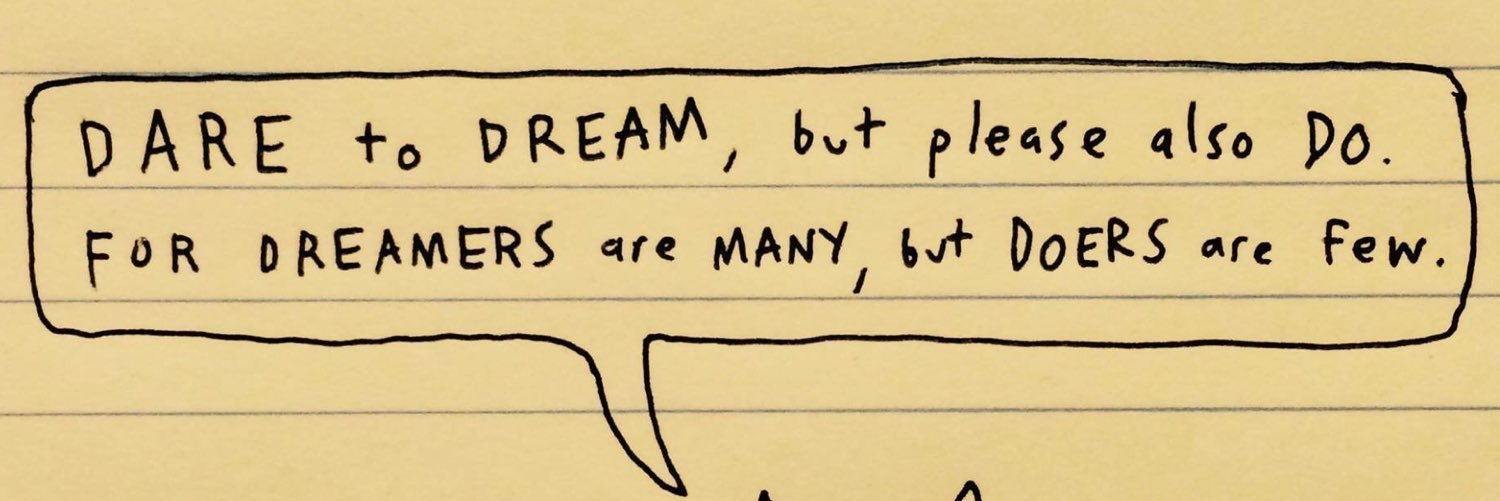 DARE to DREAM, but please also DO.
FOR DREAMERS are MANY, but DOERS are few.